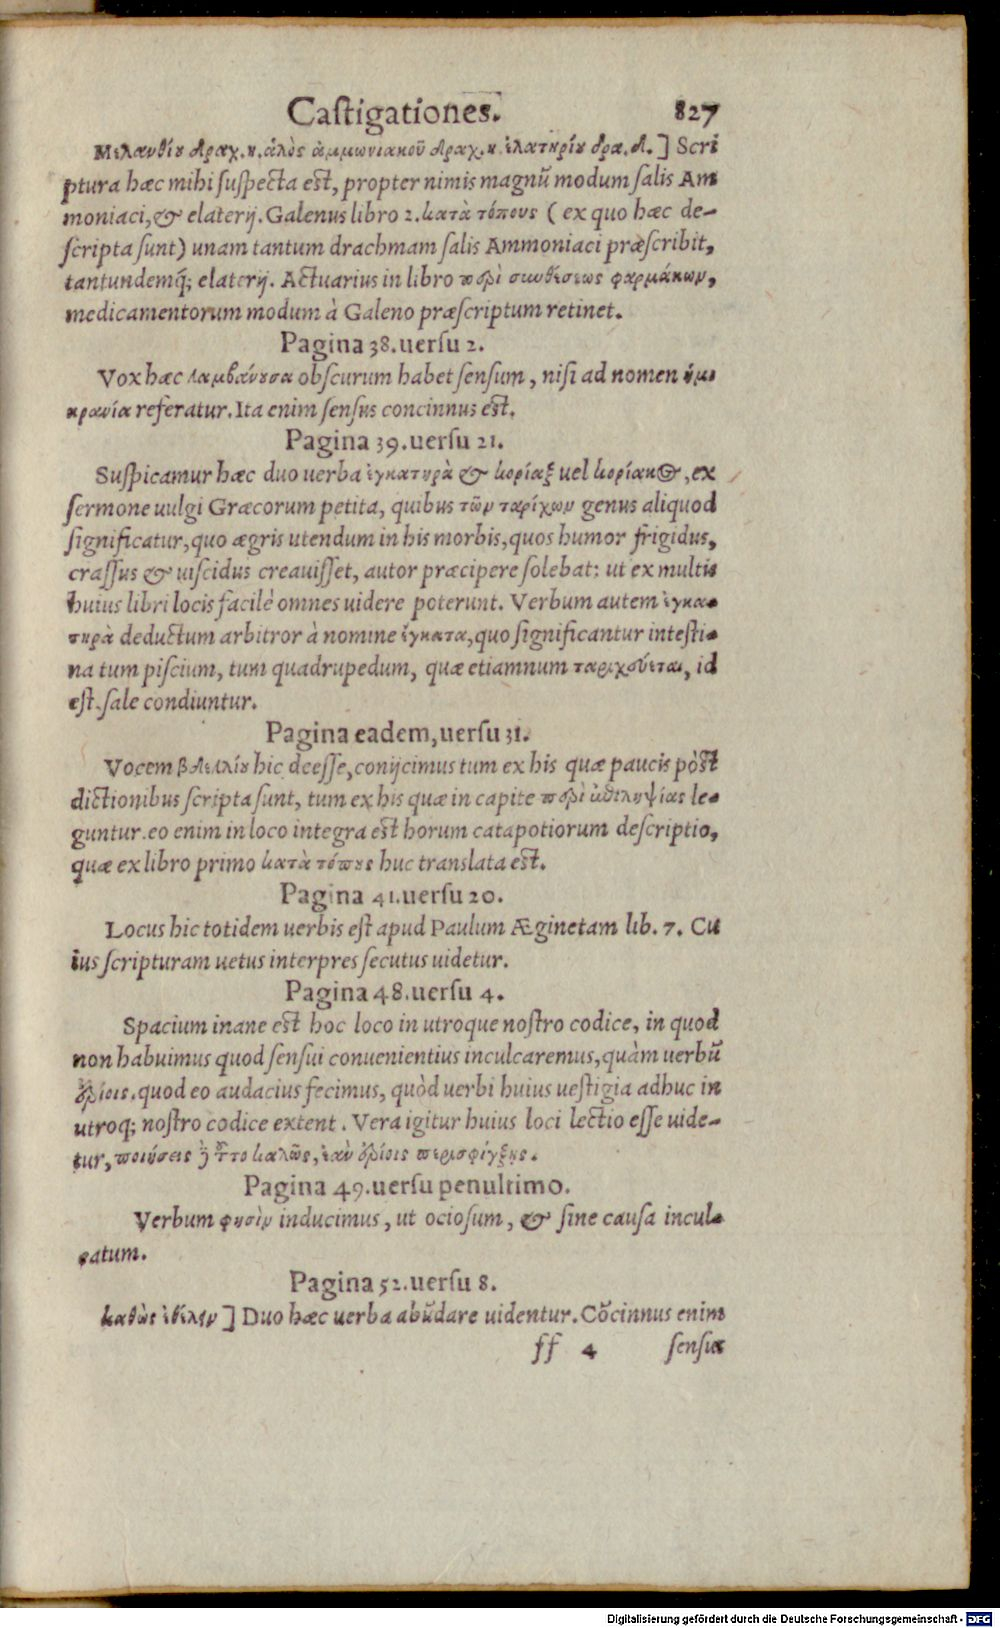 Castigationes. 827
Μελανθίου δραχ. η. ἁλὸς ἀμμωνιακοῦ δραχ. η. ἐλατηρίου δρα. δ. ] Scri
ptura hæc mihi suspecta est, propter nimis magnũ modum salis Am
moniaci, & elaterij. Galenus libro 2. κατὰ τόπους ( ex quo hæc de-
scripta sunt) unam tantum drachmam salis Ammoniaci præscribit,
tantundemq́; elaterij. Actuarius in libro περὶ συνθέσεως φαρμάκων,
medicamentorum modum à Galeno præscriptum retinet.
Pagina 38. uersu 2.
Vox hæc λαμβάνουσα obscurum habet sensum, nisi ad nomen ἡμι
κρανία referatur. Ita enim sensus concinnus est.
Pagina 39. uersu 21.
Suspicamur hæc duo uerba ἐγκατηρὰ & κορίαξ uel κορίακος, ex
sermone uulgi Græcorum petita, quibus τῶν ταρίχων genus aliquod
significatur, quo ægris utendum in his morbis, quos humor frigidus,
crassus & uiscidus creauisset, autor præcipere solebat: ut ex multis
huius libri locis facilè omnes uidere poterunt. Verbum autem ἐγκα-
τηρὰ deductum arbitror à nomine ἔγκατα, quo significantur intesti-
na tum piscium, tum quadrupedum, quæ etiamnum ταριχεύεται, id
est, sale condiuntur.
Pagina eadem, uersu 31.
Vocem βδελλίου hic deesse, conijcimus tum ex his quæ paucis pòst
dictionibus scripta sunt, tum ex his quæ in capite περὶ ἐπιληψίας le-
guntur. eo enim in loco integra est horum catapotiorum descriptio,
quæ ex libro primo κατὰ τόπους huc translata est.
Pagina 41. uersu 20.
Locus hic totidem uerbis est apud Paulum Æginetam lib. 7. Cu
ius scripturam uetus interpres secutus uidetur.
Pagina 48. uersu 4.
Spacium inane est hoc loco in utroque nostro codice, in quod
non habuimus quod sensui conuenientius inculcaremus, quàm uerbũ
quod eo audacius fecimus, quòd uerbi huius uestigia adhuc in
utroq; nostro codice extent. Vera igitur huius loci lectio esse uide-
tur, ποιήσεις καλῶς, ἐὰν περισφίγξης.
Pagina 49. uersu penultimo.
Verbum φησὶν inducimus, ut ociosum, & sine causa incul-
catum.
Pagina 52. uersu 8.
καθὼς ἔθελεν ] Duo hæc uerba abũdare uidentur. Cõcinnus enim
ff 4 sensus
Digitalisierung gefördert durch die Deutsche Forschungsgemeinschaft - DFG